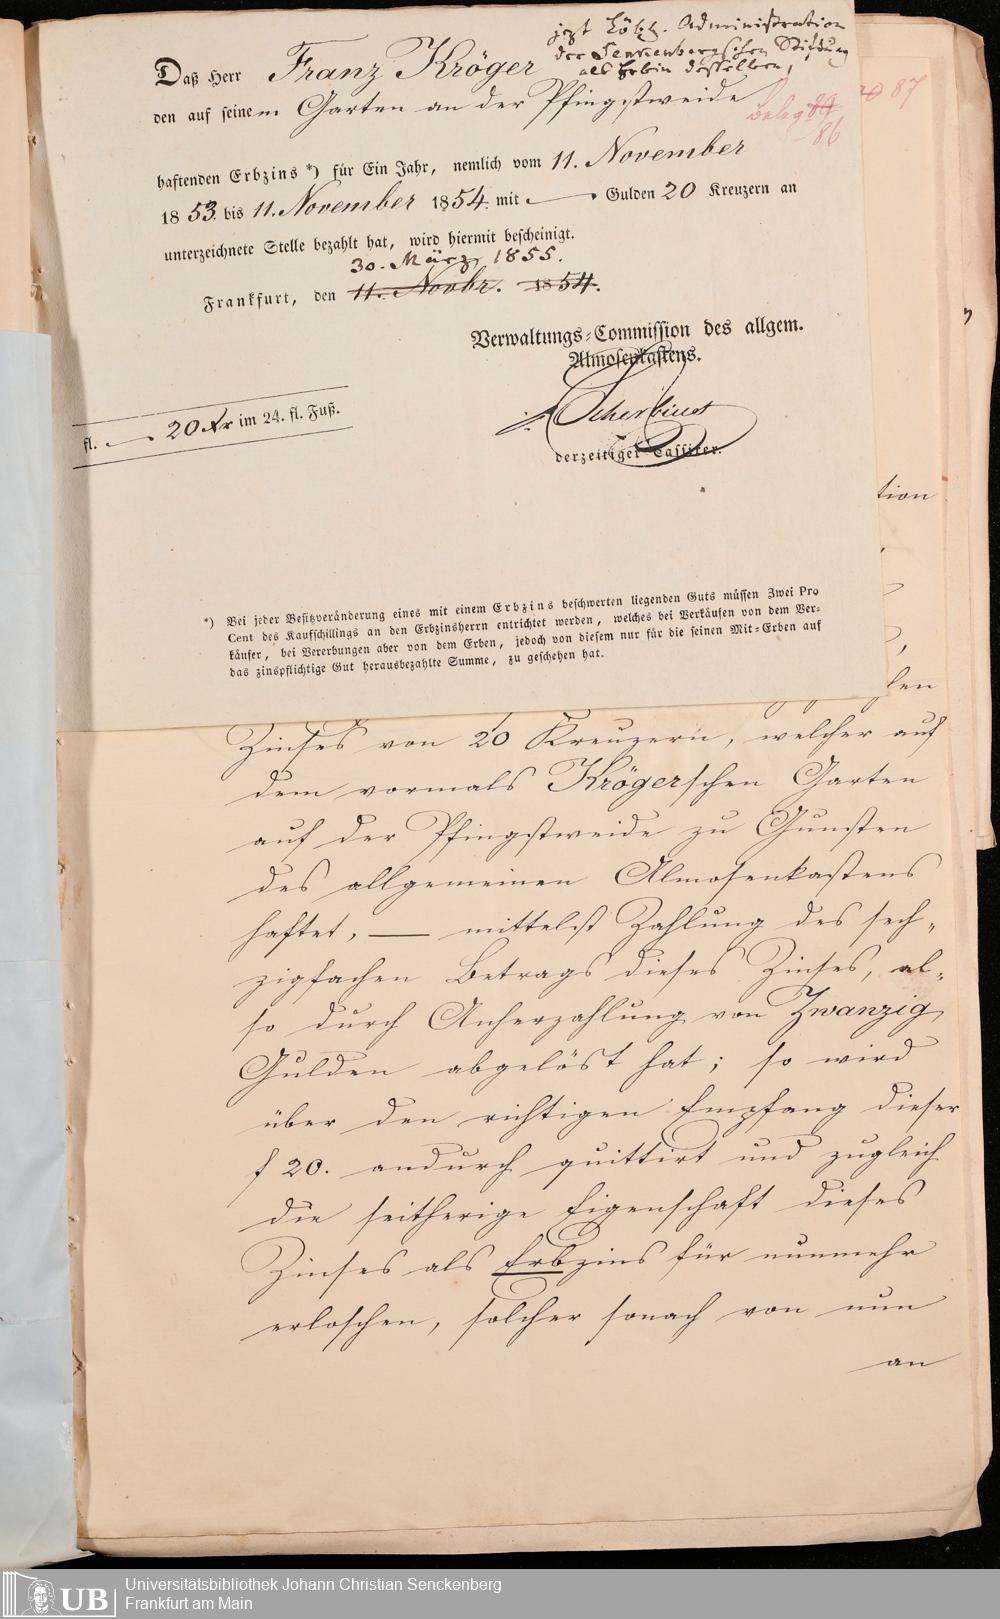 Daß Herr Franz Kröger jezt Löbl. Administration
der Senckenbergschen Stiftung
als Erbin desselben,
den auf seinem Garten an der Pfingstweide
Beleg 89 20 87
86
haftenden Erbzins *) für Ein Jahr, nemlich vom 11. November
1853. bis 11. November 1854. mit — Gulden 20 Kreuzern an
unterzeichnete Stelle bezahlt hat, wird hiermit bescheinigt.
30. März 1855.
Frankfurt, den 11. Novbr. 1854.
Verwaltungs-Commission des allgem.
Almosenkastens.
Scherbius
derzeitiger Cassirer.
fl. — 20 Xr im 24. fl. Fuß.
*) Bei jeder Besitzveränderung eines mit einem Erbzins beschwerten liegenden Guts müssen Zwei Pro
Cent des Kaufschillings an den Erbzinsherrn entrichtet werden, welches bei Verkäufen von dem Ver-
käufer, bei Vererbungen aber von dem Erben, jedoch von diesem nur für die seinen Mit-Erben auf
das zinspflichtige Gut herausbezahlte Summe, zu geschehen hat.
tion
len
Zinses von 20 Kreuzern, welcher auf
dem vormals Krögerschen Garten
auf der Pfingstweide zu Gunsten
des allgemeinen Almosenkastens
haftet, — mittelst Zahlung des sech-
zigfachen Betrags dieses Zinses, al-
so durch Anherzahlung von Zwanzig
Gulden abgelöst hat; so wird
über den richtigen Empfang dieser
f 20. andurch quittirt und zugleich
die seitherige Eigenschaft dieses
Zinses als Erbzins für nunmehr
erloschen, solcher sonach von nun
an
UB
Universitätsbibliothek Johann Christian Senckenberg
Frankfurt am Main